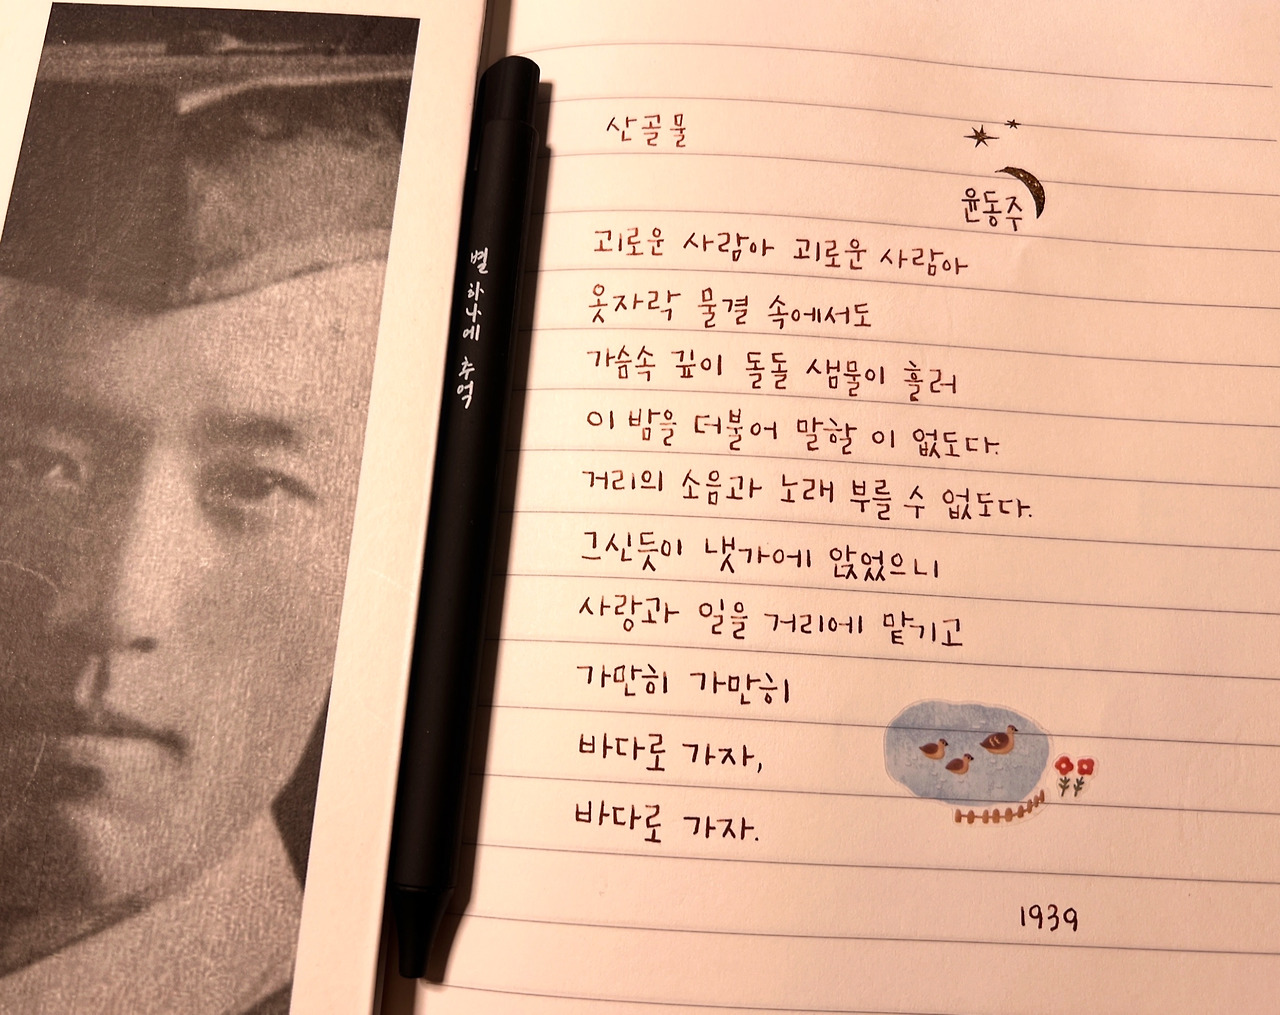 별 하나에 추억
산골물
윤동주
괴로운 사람아 괴로운 사람아
옷자락 물결 속에서도
가슴속 깊이 돌돌 샘물이 흘러
이 밤을 더불어 말할 이 없도다.
거리의 소음과 노래 부를 수 없도다.
그신듯이 냇가에 앉었으니
사랑과 일을 거리에 맡기고
가만히 가만히
바다로 가자,
바다로 가자.
1939